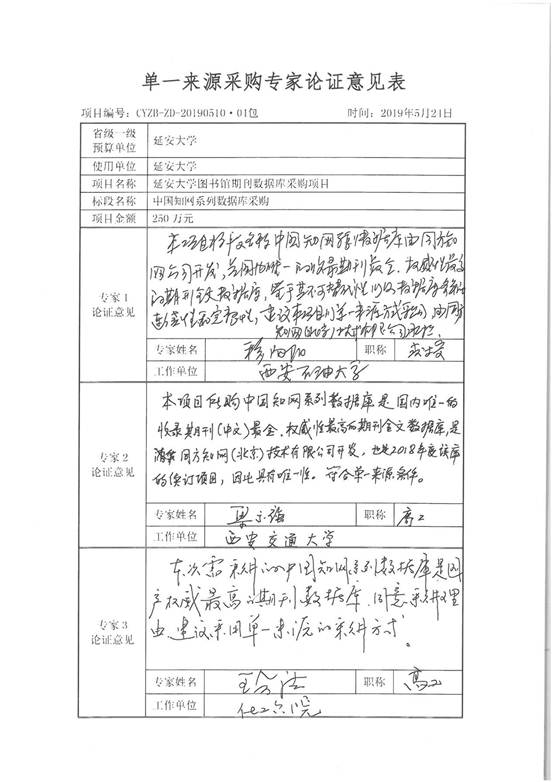 单一来源采购专家论证意见表
项目编号：CYZB-ZD-20190510·01包 时间：2019年5月21日
省级一级预算单位 延安大学
使用单位 延安大学
项目名称 延安大学图书馆期刊数据库采购项目
标段名称 中国知网系列数据库采购
项目金额 250 万元
专家 1 论证意见
中国知网 数据库由同方知
网公司开发，是国内唯一的收录期刊最全、权威性最高
的期刊全文数据库，
专家姓名 职称
工作单位 西安石油大学
专家 2 论证意见
本项目所购中国知网系列数据库是国内唯一的
收录期刊(中文)最全、权威性最高的期刊全文数据库，是
同方知网(北京)技术有限公司开发。也是2018年度该库
的续订项目，因此具有唯一性。符合单一来源条件。
专家姓名 职称 高工
工作单位 西安交通大学
专家 3 论证意见
本次需采购的中国知网系列数据库是国
产权威最高的期刊数据库，同意采购理
由，建议采用单一来源的采购方式。
专家姓名 职称 高工
工作单位